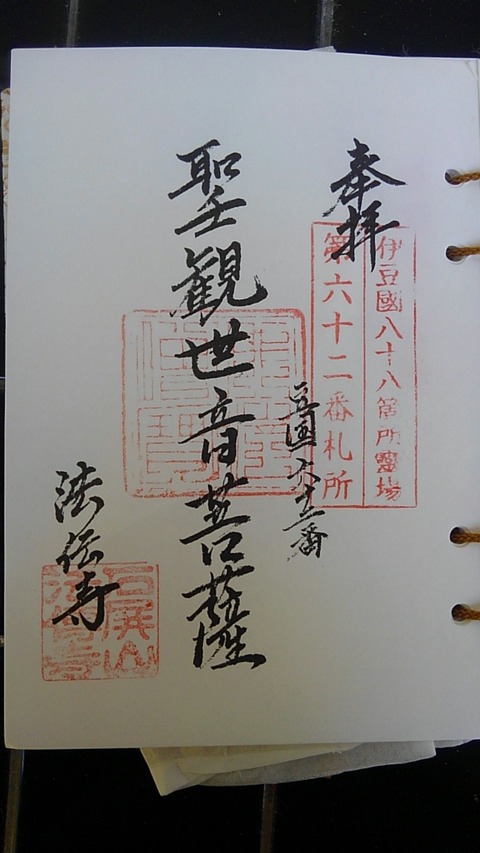 奉拝
伊豆國八十八箇所靈場
第六十二番札所
豆国六十二番
聖観世音菩薩
法伝寺
石屏山
法傳寺